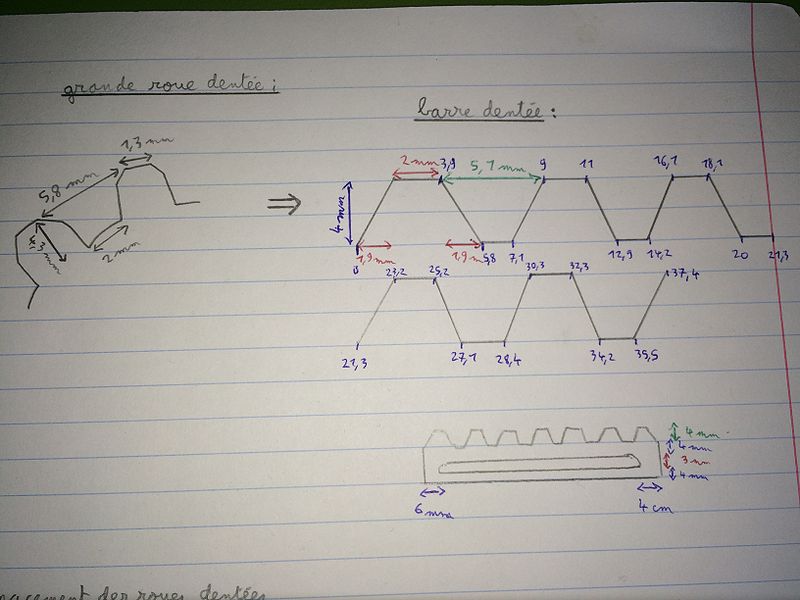 grande roue dentée :
barre dentée :
1,3 mm
5,8 mm
3 mm
2 mm
2 mm
3,9
5,1 mm
9
11
16,1
18,1
4 mm
0
1,9 mm
1,9 m
5,8
7,1
12,9
14,2
20
21,3
23,2
25,2
30,3
32,3
37,4
21,3
27,1
28,4
34,2
35,5
4 mm
4 mm
3 mm
4 mm
6 mm
4 cm
des roues dentées